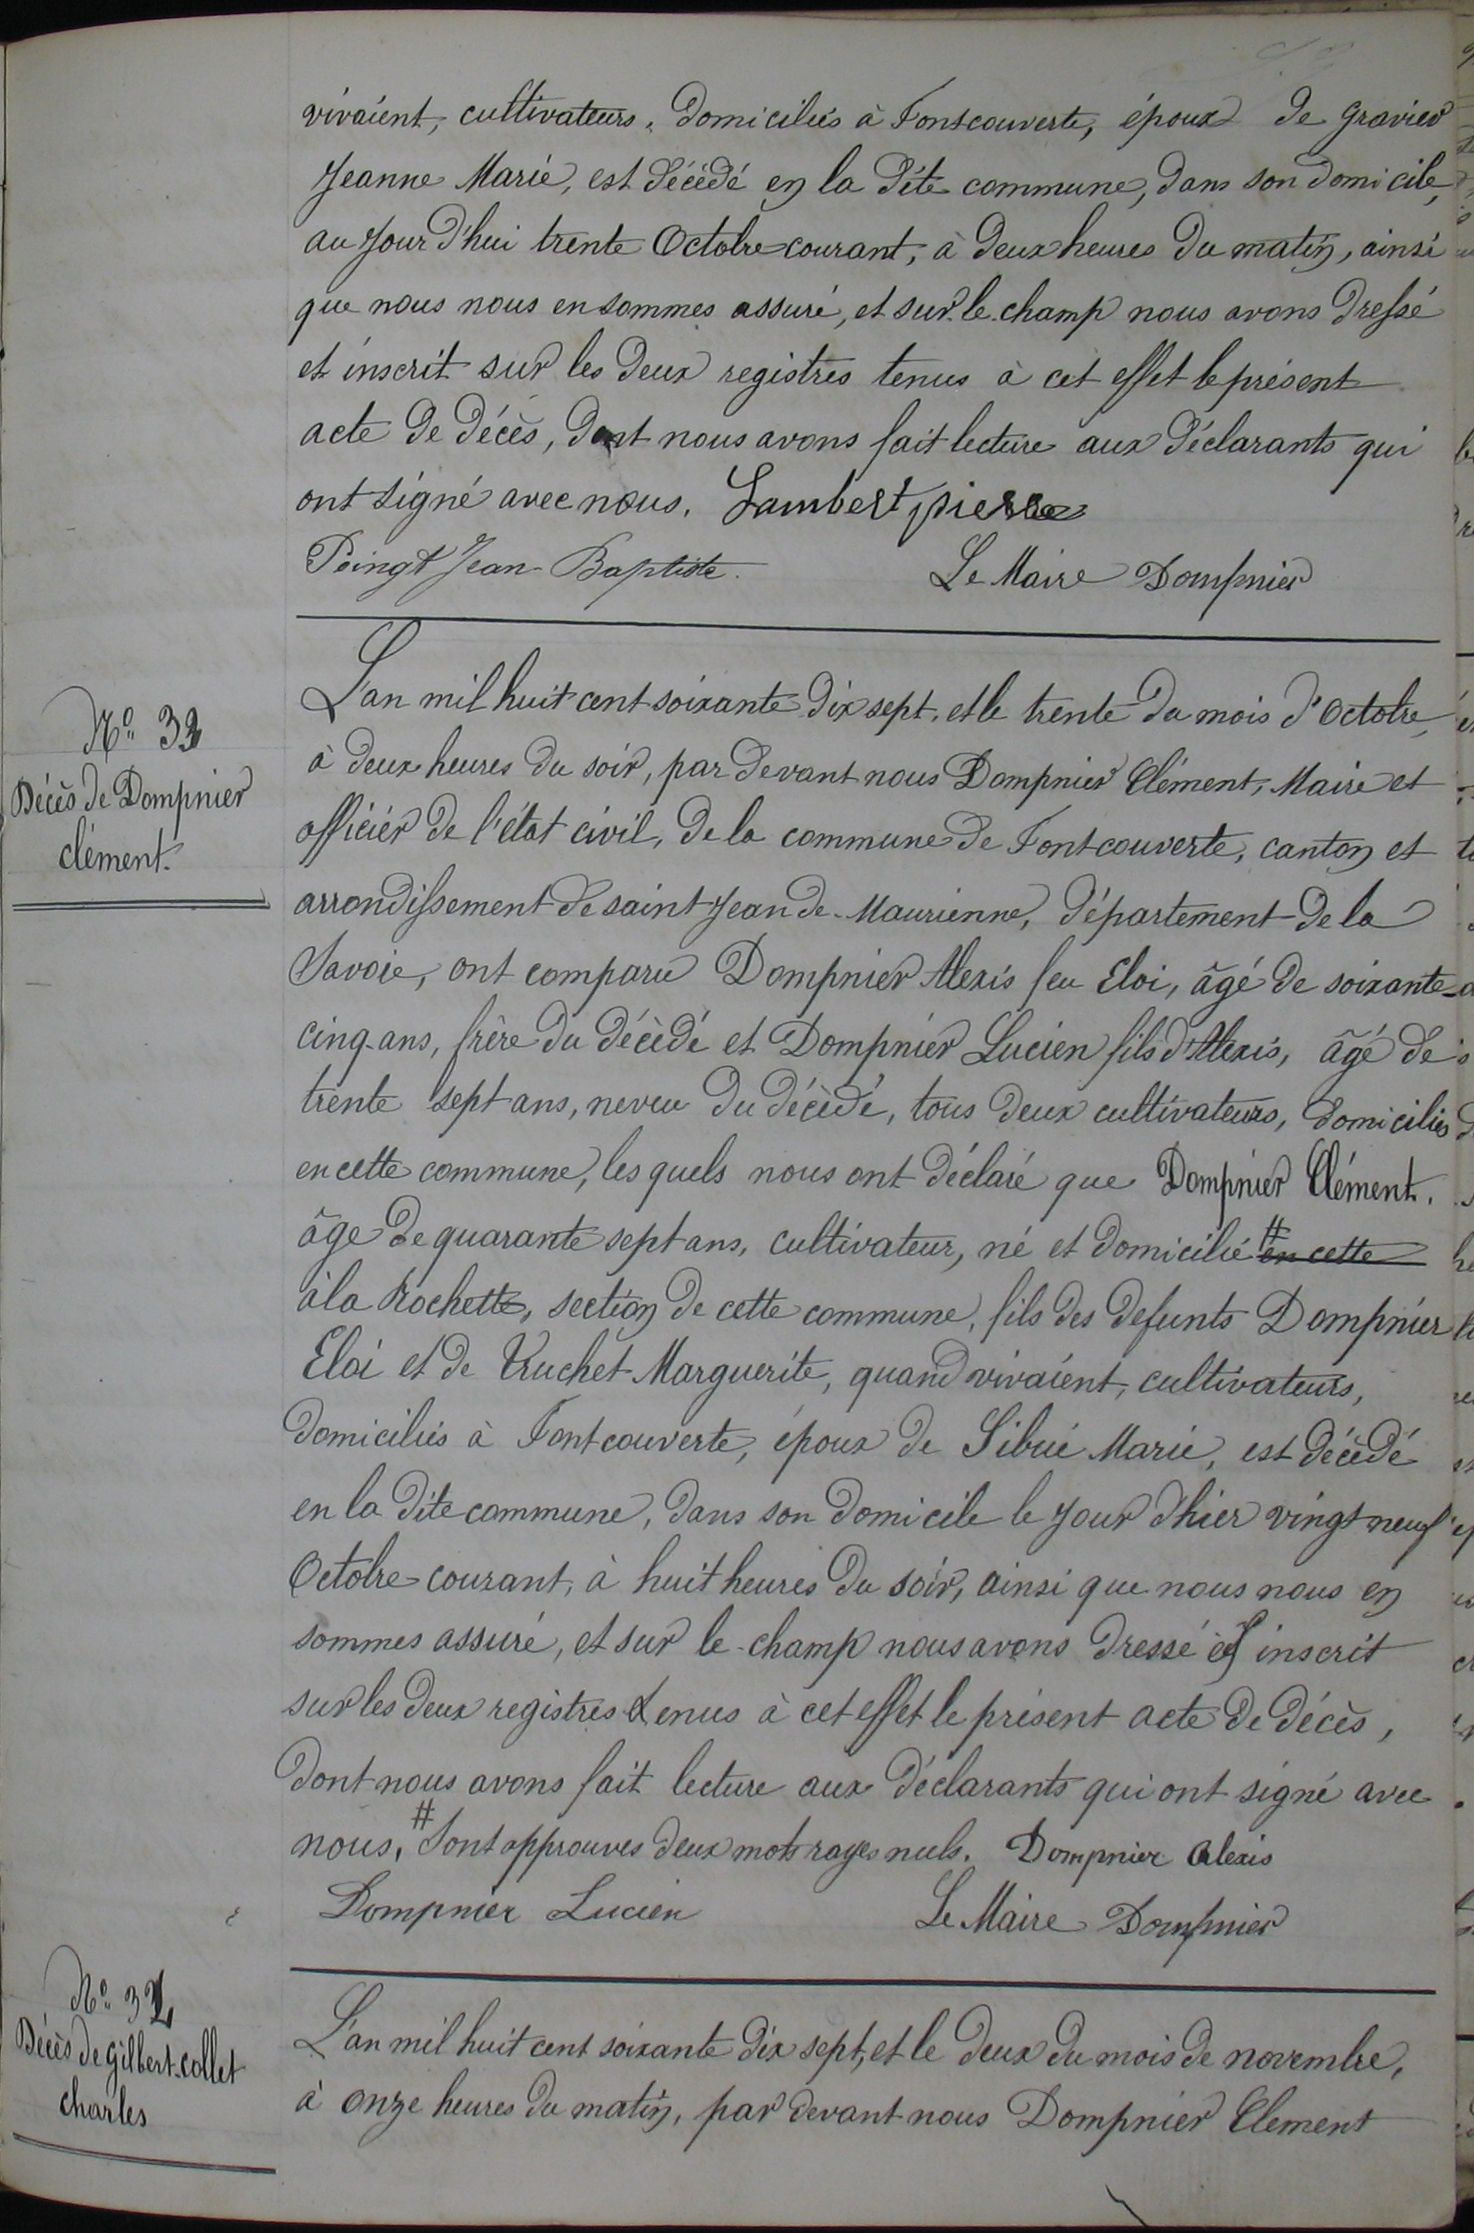 vivaient, cultivateurs, domiciliés à Fontcouverte, époux de Gravier
Jeanne Marie, est décédé en la dite commune, dans son domicile,
au jour d'hui trente Octobre courant, à deux heures du matin, ainsi
que nous nous en sommes assuré, et sur le champ nous avons dressé
et inscrit sur les deux registres tenus à cet effet le présent
acte de décès, dont nous avons fait lecture aux déclarants qui
ont signé avec nous. Lambert pierre
Poingt Jean-Baptiste. Le Maire Dompnier
N°
Décès de Dompnier
clément.
L'an mil huit cent soixante dix sept, et le trente du mois d'Octobre,
à deux heures du soir, par devant nous Dompnier Clément, Maire et
officier de l'état civil, de la commune de Fontcouverte, canton et
arrondissement de saint Jean de-Maurienne, département de la
Savoie, ont comparu Dompnier Alexis feu Eloi, âgé de soixante-
cinq-ans, frère du décédé et Dompnier Lucien fils d'Alexis, âgé de
trente sept ans, neveu du décédé, tous deux cultivateurs, domiciliés
en cette commune, les quels nous ont déclaré que Dompnier Clément.
âge de quarante sept ans, cultivateur, né et domicilié # en cette
à la Rochette, section de cette commune, fils des defunts Dompnier
Eloi et de Truchet Marguerite, quand vivaient, cultivateurs,
domiciliés à Fontcouverte, époux de Sibué Marie, est décédé
en la dite commune, dans son domicile le jour d'hier vingt neuf
Octobre courant, à huit heures du soir, ainsi que nous nous en
sommes assuré, et sur le-champ nous avons dressé et inscrit
sur les deux registres tenus à cet effet le présent acte de décès,
dont nous avons fait lecture aux déclarants qui ont signé avec
nous. # Sont approuves deux mots rayes nuls. Dompnier Alexis
Dompnier Lucien Le Maire Dompnier
N°
Décès de gilbert-collet
charles
L'an mil huit cent soixante dix sept, et le deux du mois de novembre,
à onze heures du matin, par devant nous Dompnier Clement